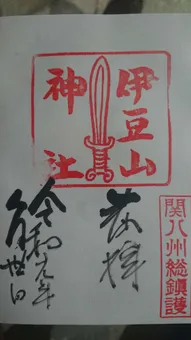 関八州総鎮護
奉拝
伊豆山
神社
令和元年